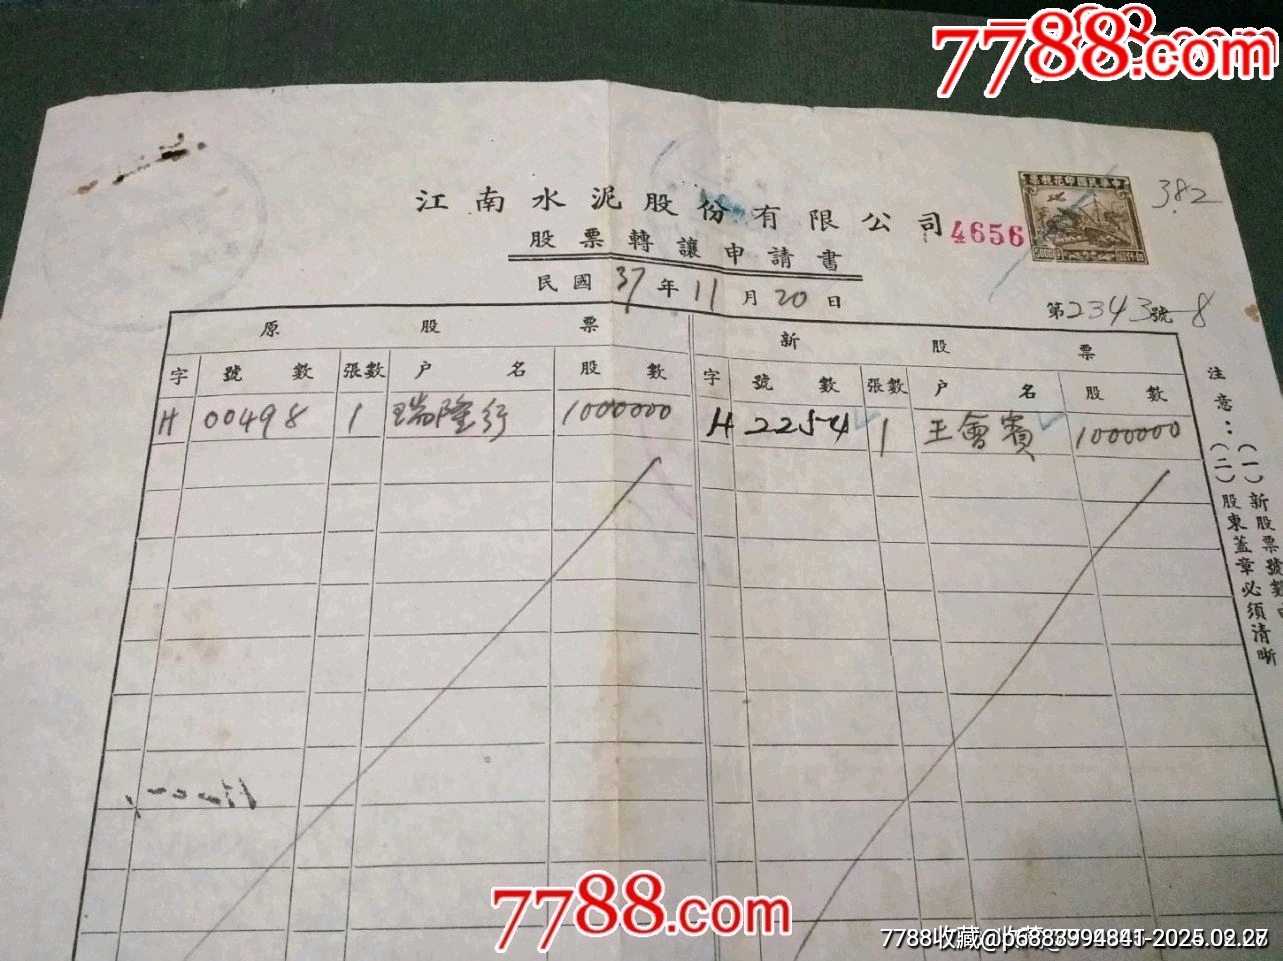 7788.com
中華民國印花稅票
382
江南水泥股份有限公司
4656
股票轉讓申請書
民國37年11月20日
第2343號-8
原股票
新股票
字 號數 張數 户名 股數 字 號數 張數 户名 股數
H 00498 1 瑞隆行 1000000 H 2254 1 王會賓 1000000
注意：(一)新股票號數
(二)股東蓋章必須清晰
7788.com
7788收藏